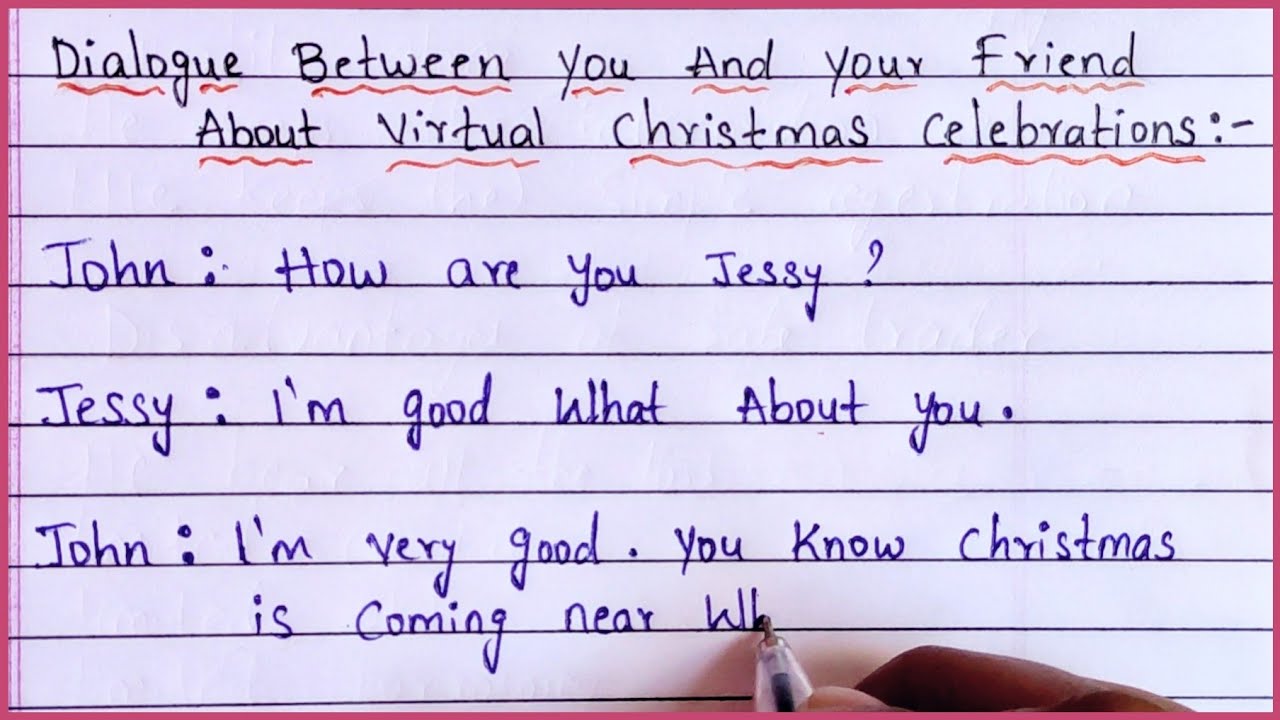 Dialogue Between You And Your Friend
About Virtual Christmas Celebrations:-
John : How are you Jessy ?
Jessy : I'm good What About you.
John : I'm very good. You Know Christmas
is Coming near Wh